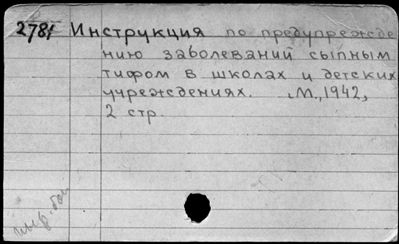 2781 Инструкция по предупрежде
нию заболеваний сыпным
тифом в школах и детских
учреждениях. М., 1942,
2 стр.